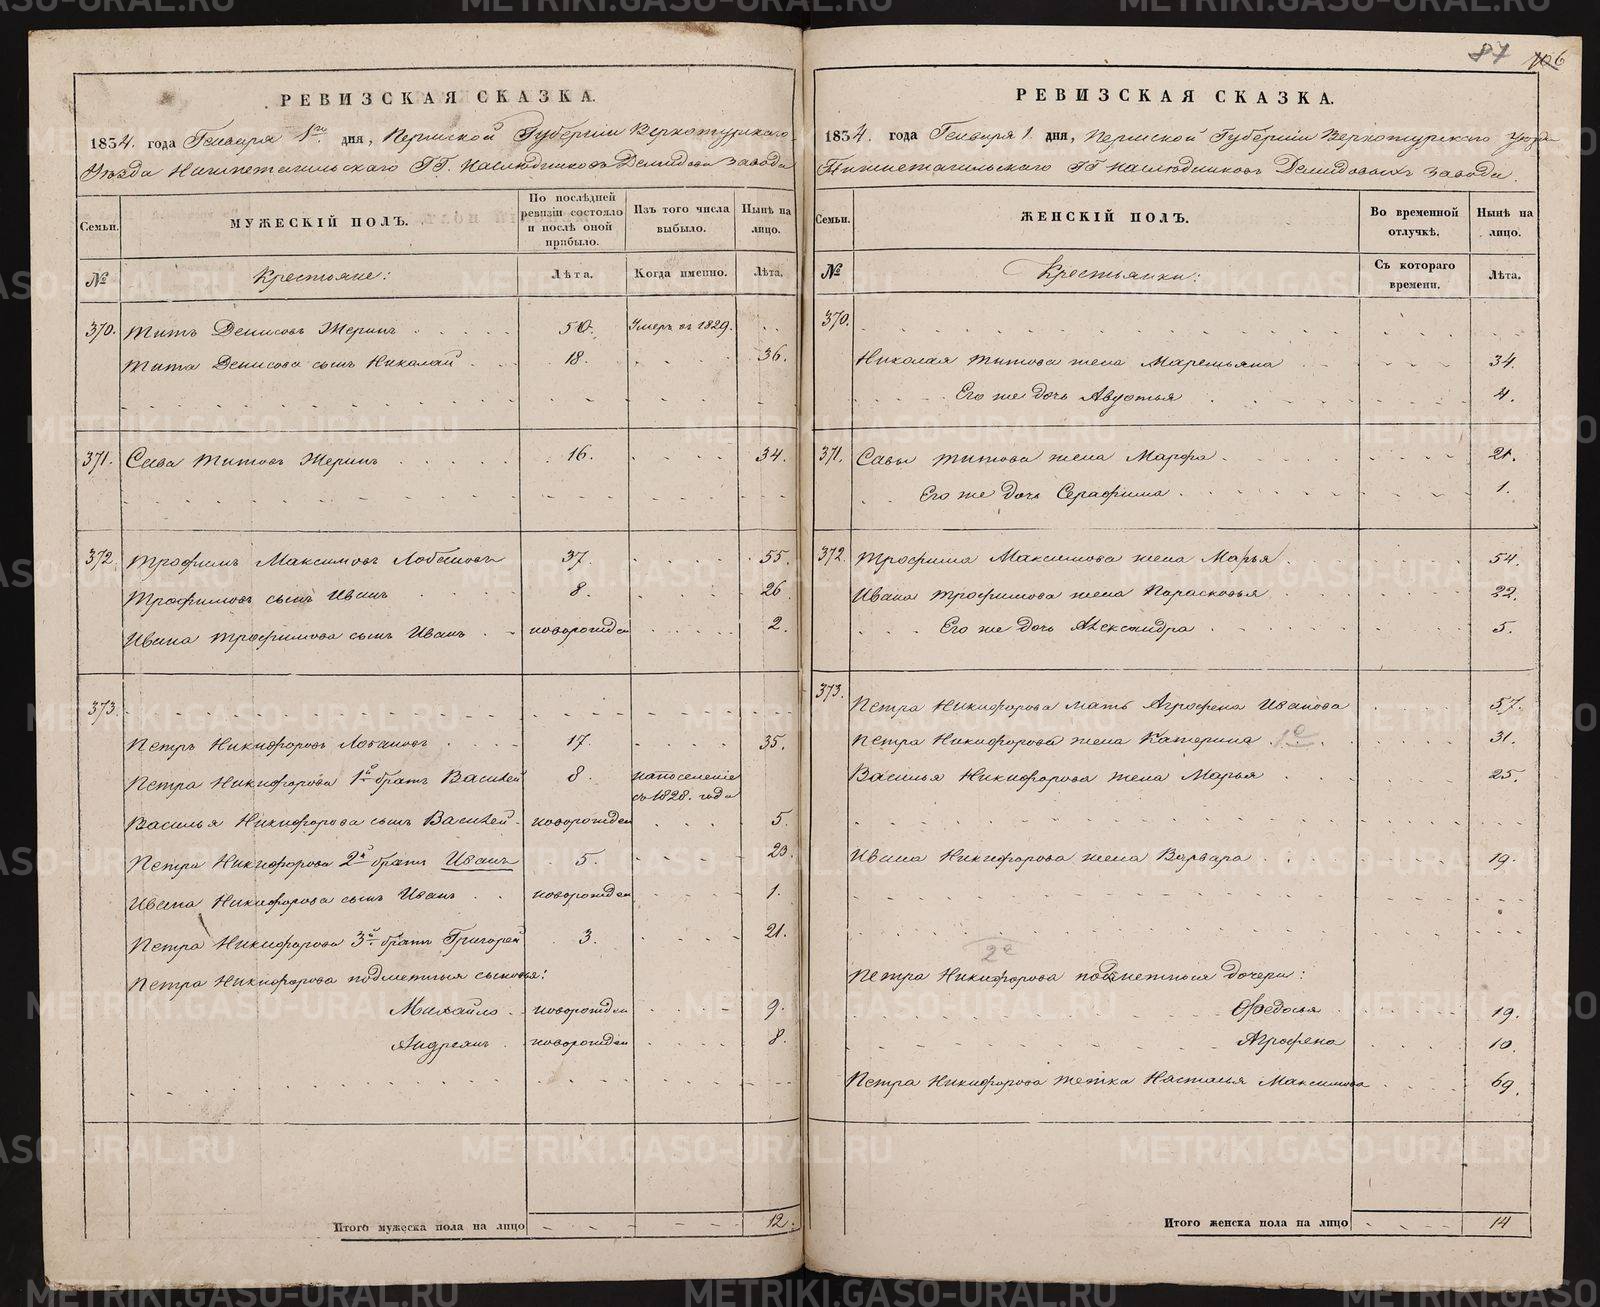 87 106
РЕВИЗСКАЯ СКАЗКА.
1834 года Генваря 1го дня, Пермской Губернии Верхотурскаго
Уѣзда Нижнетагильскаго ГГ. Наслѣдниковъ Демидова завода
Семьи.
МУЖЕСКІЙ ПОЛЪ.
По послѣдней ревизіи состояло и послѣ оной прибыло.
Изъ того числа выбыло.
Нынѣ на лицо.
№ Крестьяне: Лѣта. Когда именно. Лѣта.
370. Титъ Денисовъ Жеринъ 50. Умеръ въ 1829.
Тита Денисова сынъ Николай 18. 36.
371. Сава Титовъ Жеринъ 16. 34.
372. Трофимъ Максимовъ Лобановъ 37. 55.
Трофимовъ сынъ Иванъ 8. 26
Ивана Трофимова сынъ Иванъ новорожден 2.
373.
Петръ Никифоровъ Лобановъ 17. 35.
Петра Никифорова 1й братъ Василей 8. на поселеніе
съ 1828. года
Василья Никифорова сынъ Василей новорожден 5.
Петра Никифорова 2й братъ Иванъ 5. 23.
Ивана Никифорова сынъ Иванъ новорожден 1.
Петра Никифорова 3й братъ Григорей 3. 21.
Петра Никифорова подметныя сыновья:
Михайло новорожден 9.
Андреянъ новорожден 8.
Итого мужеска пола на лицо 12.
РЕВИЗСКАЯ СКАЗКА.
1834. года Генваря 1. дня, Пермской Губерніи Верхотурскаго Уезда
Нижнетагильскаго ГГ Наслѣдниковъ Демидовыхъ завода.
Семьи.
ЖЕНСКІЙ ПОЛЪ.
Во временной отлучкѣ.
Нынѣ на лицо.
№ Крестьянки: Съ котораго времени. Лѣта.
370.
Николая Титова жена Маремьяна 34.
Его же дочь Авдотья 4.
371. Савы Титова жена Марфа 21.
Его же дочь Серафима 1.
372 Трофима Максимова жена Марья 54.
Ивана Трофимова жена Парасковья 22.
Его же дочь Александра 5.
373. Петра Никифорова мать Агрофена Иванова 57.
Петра Никифорова жена Катерина 1е 31.
Василья Никифорова жена Марья 25.
Ивана Никифорова жена Варвара 19.
2е
Петра Никифорова подметныя дочери:
Федосья 19.
Агрофена 10.
Петра Никифорова тетка Настасья Максимова 69.
Итого женска пола на лицо 14
METRIKI.GASO-URAL.RU